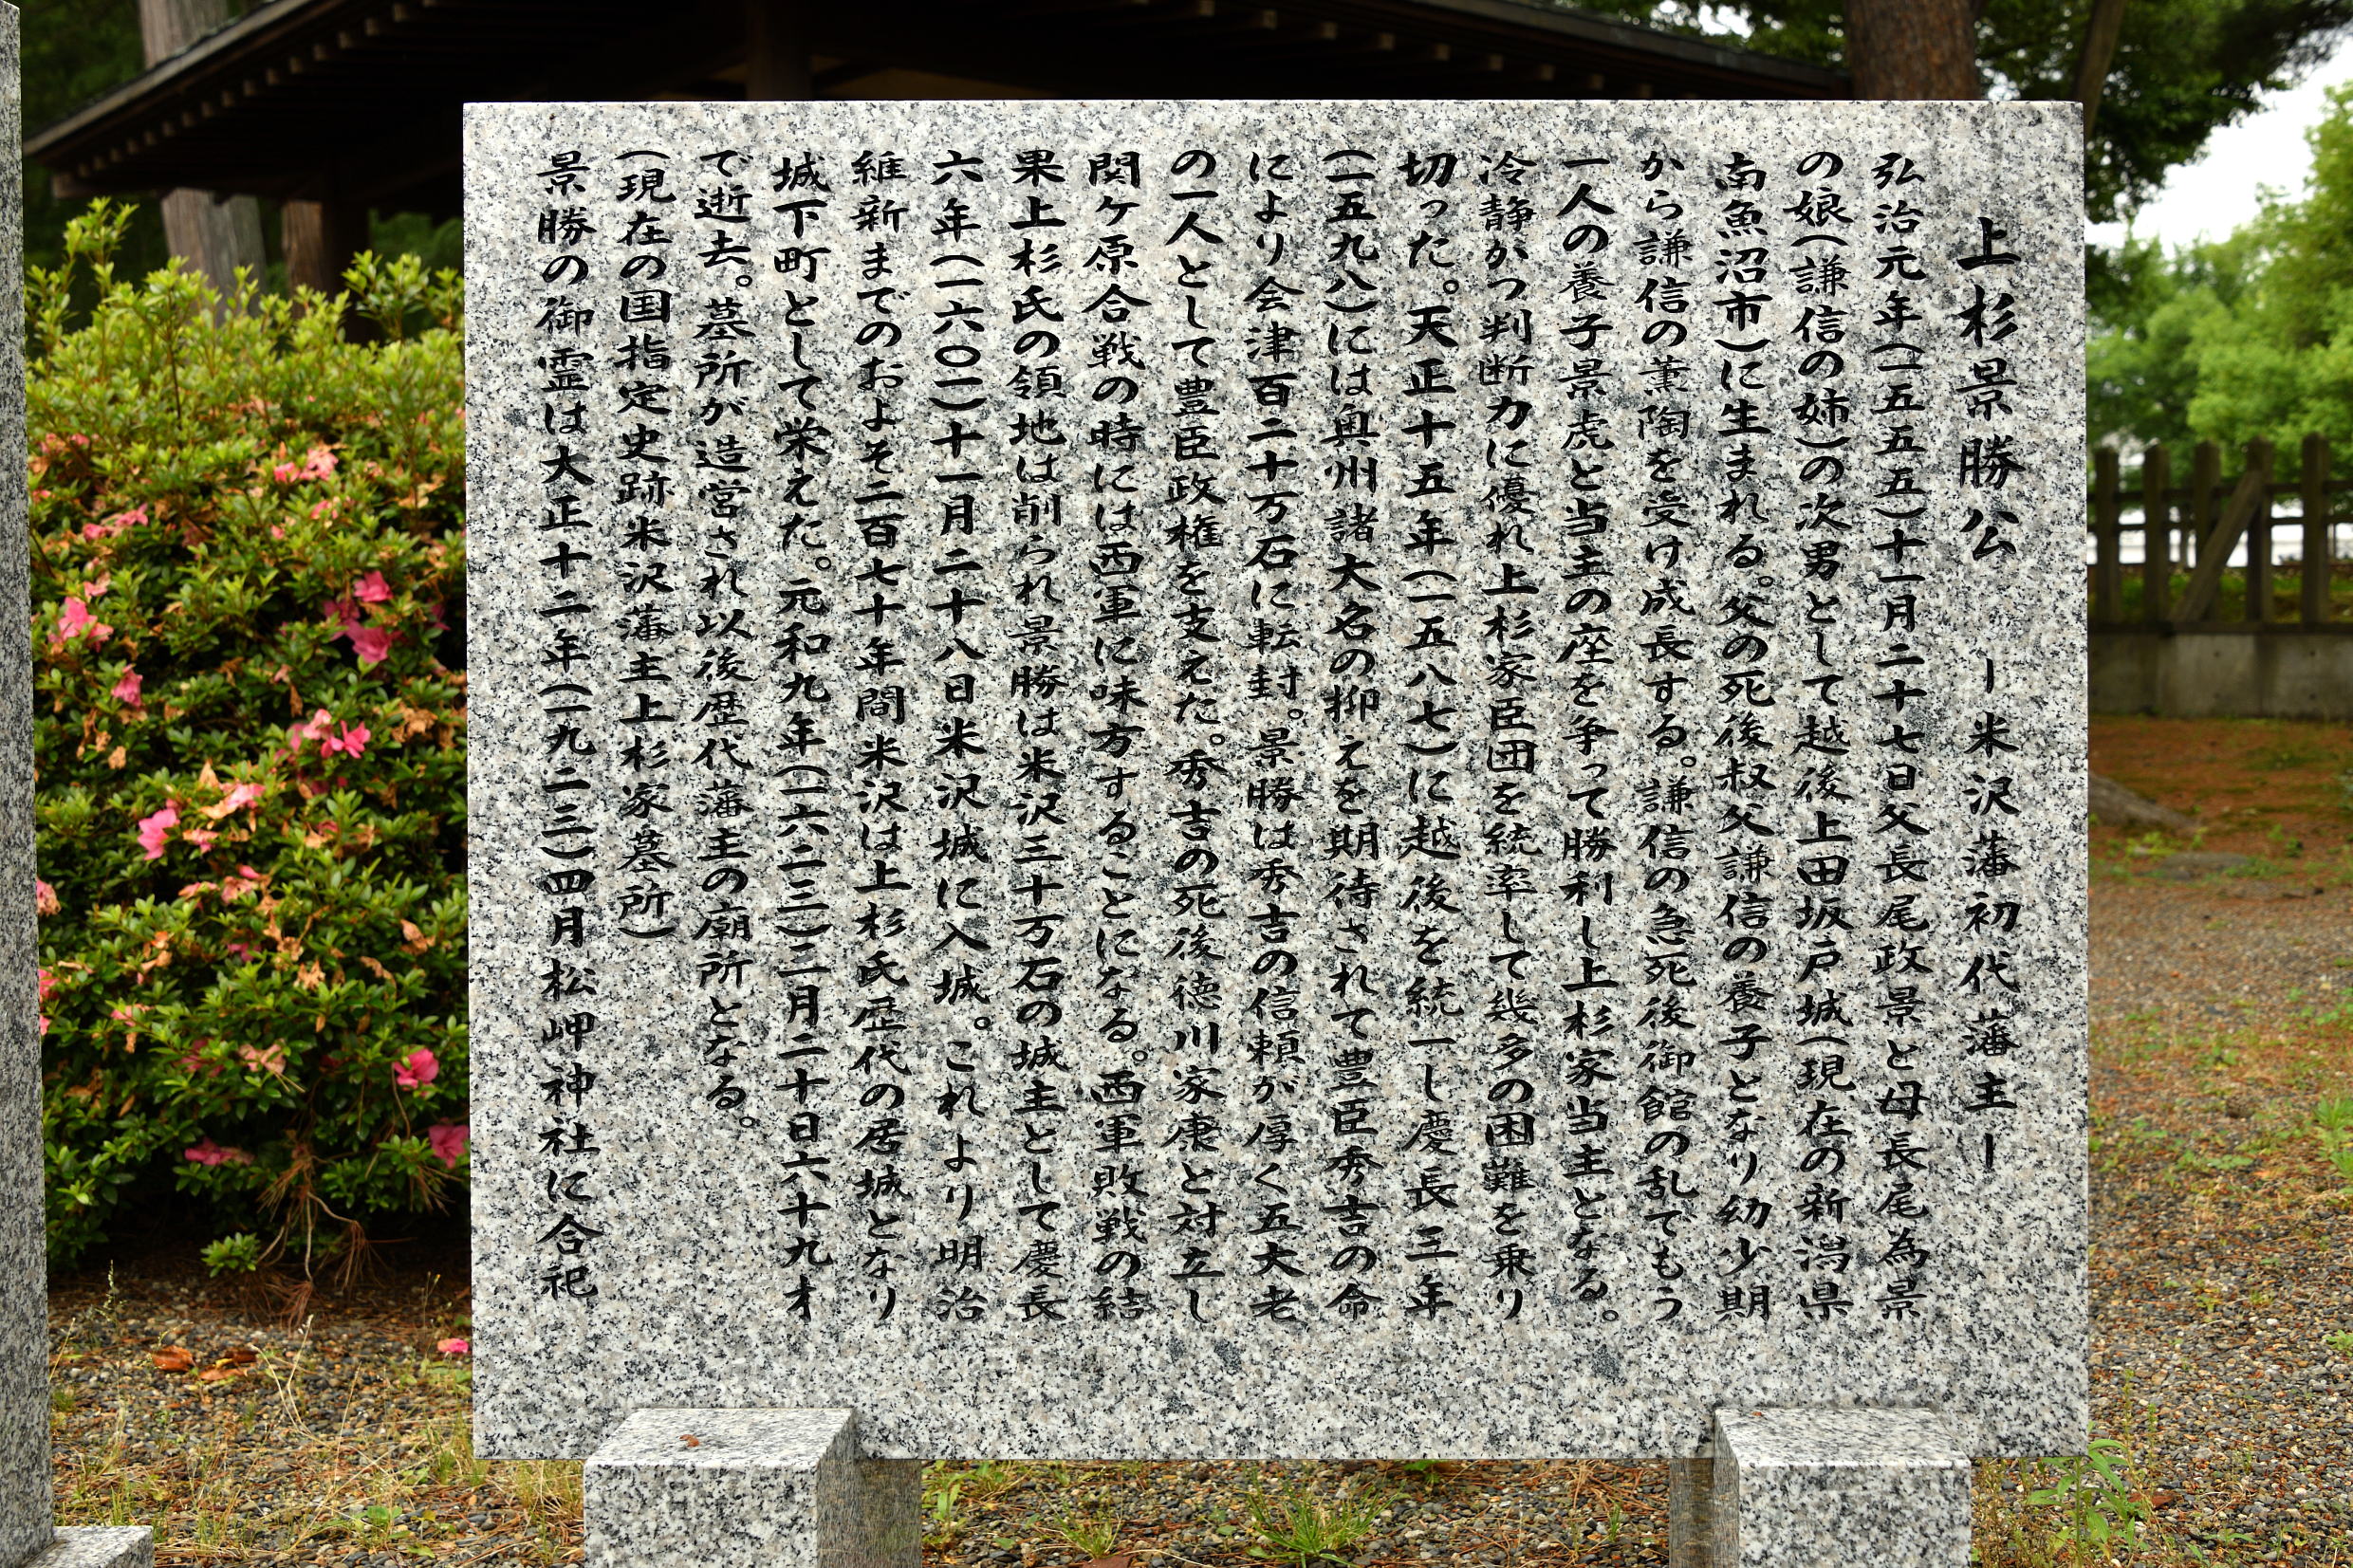 上杉景勝公　ー米沢藩初代藩主ー
弘治元年(一五五五)十一月二十七日父長尾政景と母長尾為景
の娘(謙信の姉)の次男として越後上田坂戸城(現在の新潟県
南魚沼市)に生まれる。父の死後叔父謙信の養子となり幼少期
から謙信の薫陶を受け成長する。謙信の急死後御館の乱でもう
一人の養子景虎と当主の座を争って勝利し上杉家当主となる。
冷静かつ判断力に優れ上杉家臣団を統率して幾多の困難を乗り
切った。天正十五年(一五八七)に越後を統一し慶長三年
(一五九八)には奥州諸大名の抑えを期待されて豊臣秀吉の命
により会津百二十万石に転封。景勝は秀吉の信頼が厚く五大老
の一人として豊臣政権を支えた。秀吉の死後徳川家康と対立し
関ヶ原合戦の時には西軍に味方することになる。西軍敗戦の結
果上杉氏の領地は削られ景勝は米沢三十万石の城主として慶長
六年(一六〇一)十一月二十八日米沢城に入城。これより明治
維新までのおよそ二百七十年間米沢は上杉氏歴代の居城となり
城下町として栄えた。元和九年(一六二三)三月二十日六十九才
で逝去。墓所が造営され以後歴代藩主の廟所となる。
(現在の国指定史跡米沢藩主上杉家墓所)
景勝の御霊は大正十二年(一九二三)四月松岬神社に合祀